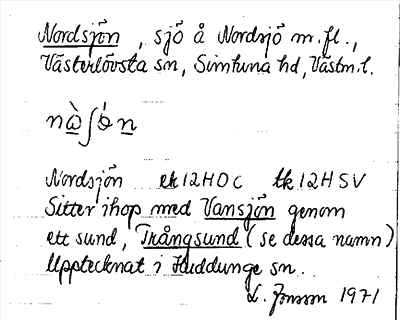 Nordsjön, sjö å Nordsjö m.fl.,
Västerlövsta sn, Simtuna hd, Västm.l.
Nordsjön ek 12H0c tk 12HSV
Sitter ihop med Vansjön genom
ett sund, Trångsund (se dessa namn)
Upptecknat i Huddunge sn.
L. Jonsson 1971